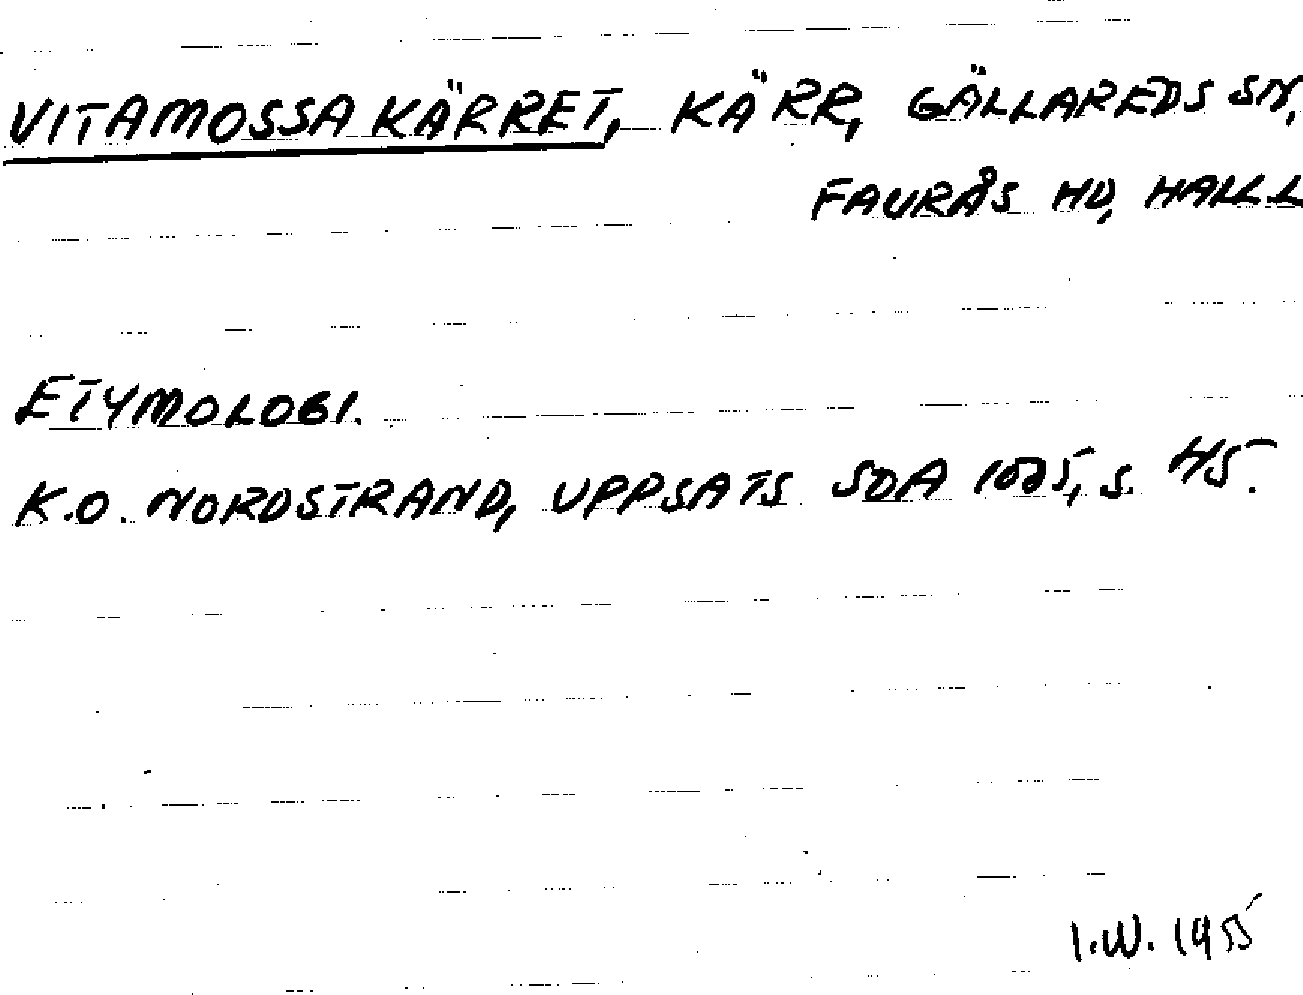 VITAMOSSA KÄRRET, KÄRR, GÄLLAREDS SN,
FAURÅS HD, HALL
ETYMOLOGI.
K.O. NORDSTRAND, UPPSATS SDA s. 45.
I.W. 1955